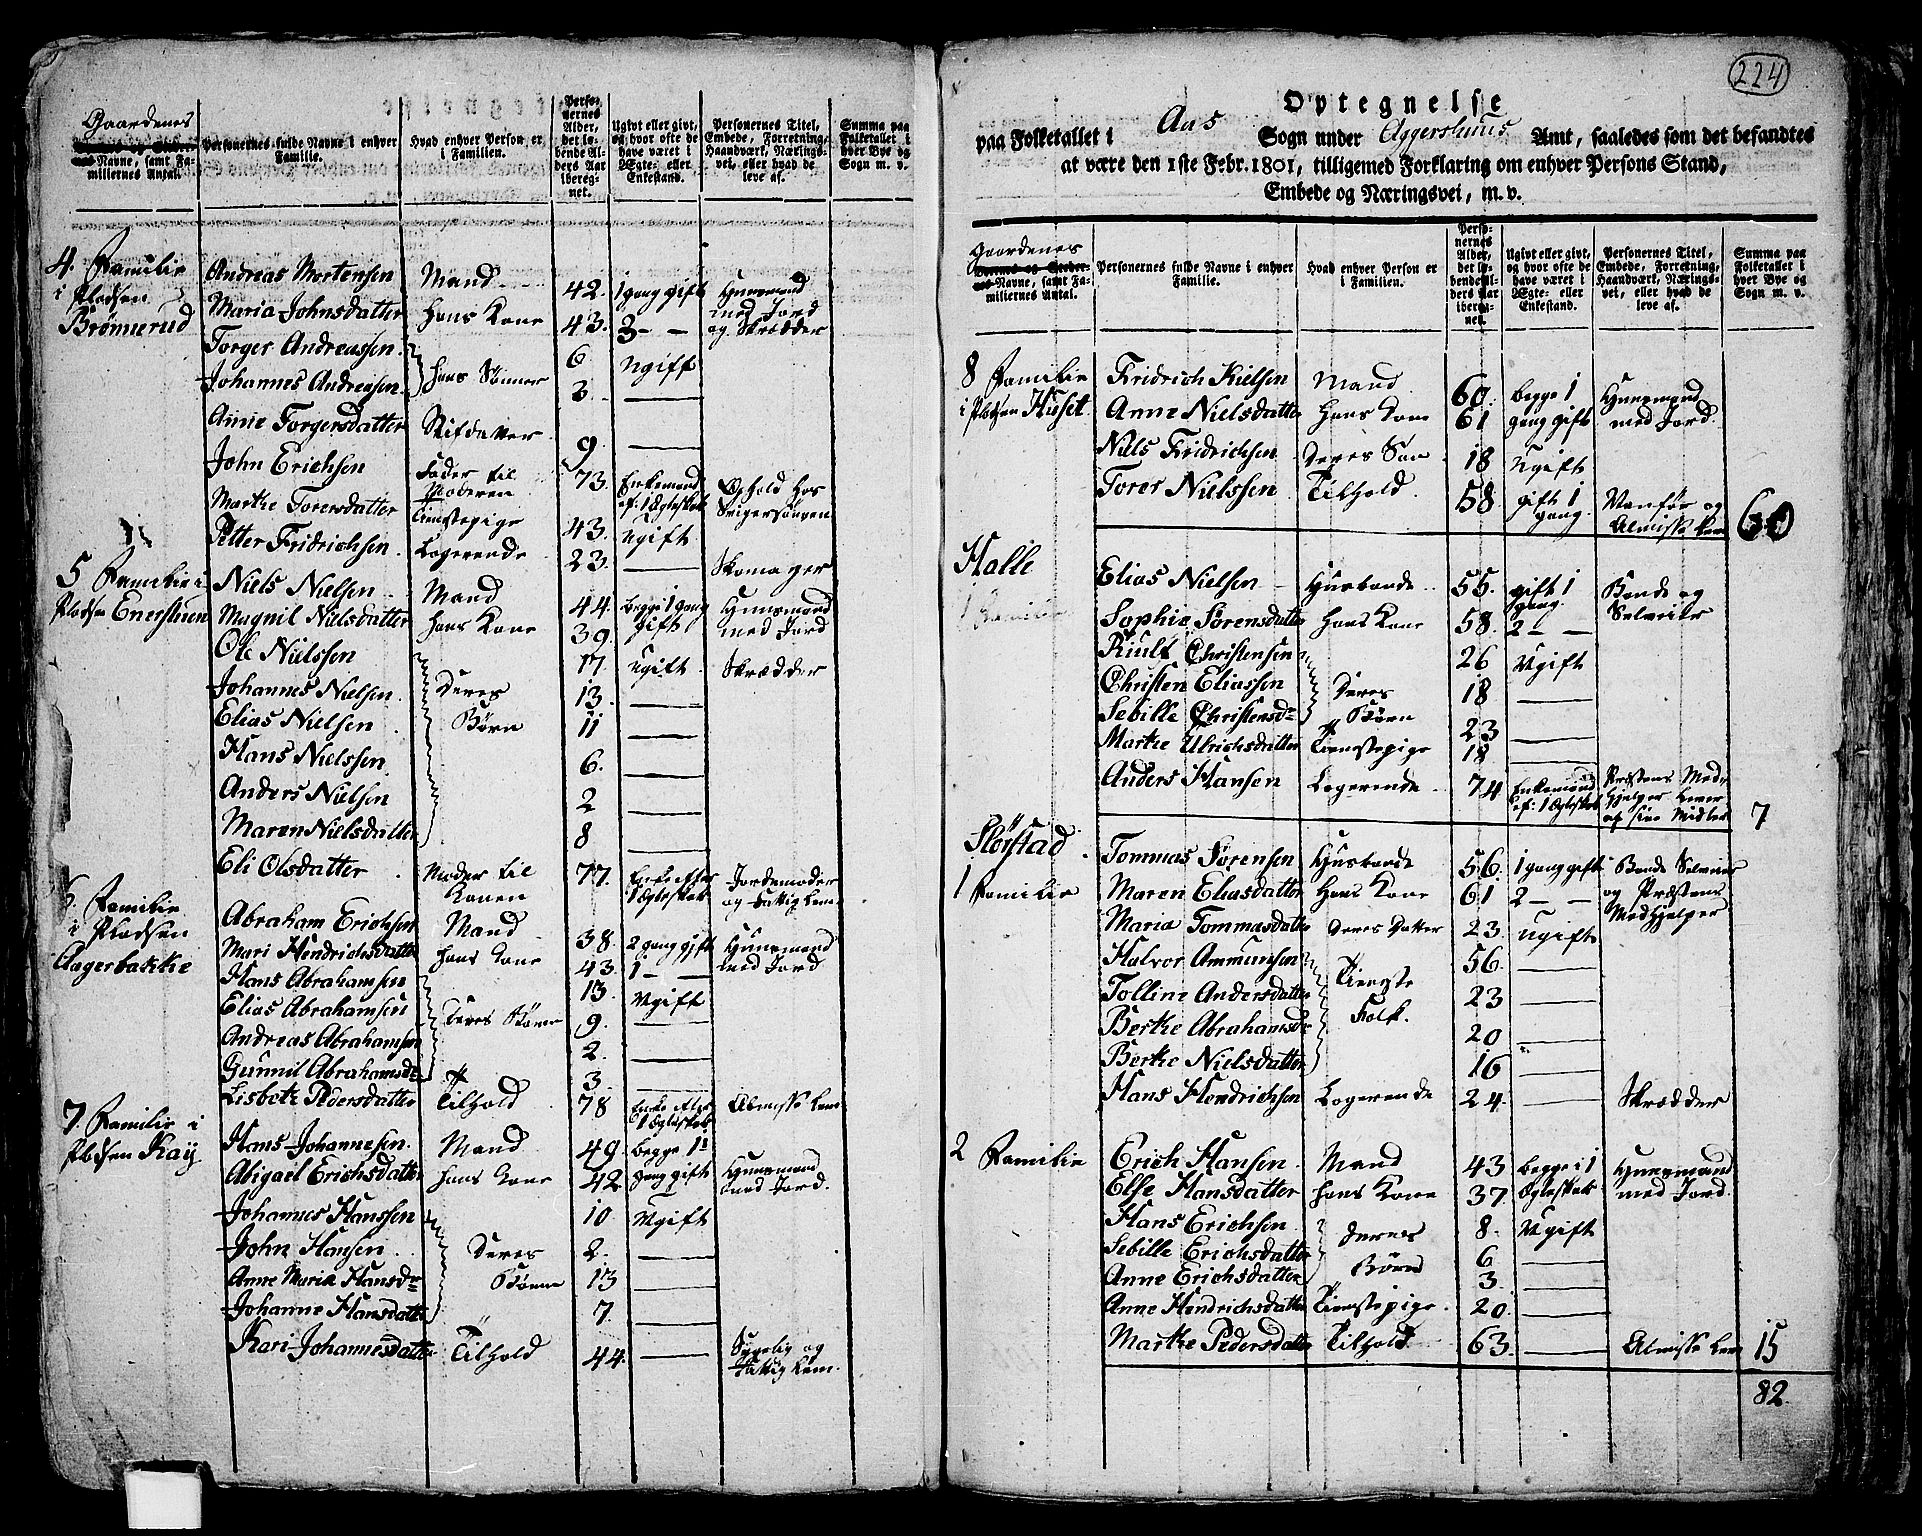 Gaardenes
Navne, samt Familiernes Antal.
Personernes fulde Navne i enhver Familie.
Hvad enhver Person er i Familien.
Personernes Alder, det løbende Alders Aar iberegnet.
Ugivt eller givt, og hvor ofte de have været i Ægte- eller Enkestand.
Personernes Titel, Embede, Forretning, Haandværk, Næringsvei, eller hvad de leve af.
Summa paa Folketallet i hver Bye og Sogn m. v.
4. Familie i Pladsen Brönnerud
Andreas Mortensen Mand 42. 1 gang gift Huusmand med Jord og Skrædder
Maria Johnsdatter Hans Kone 43. 3 — —
Torger Andreassen hans Sønner 6 Ugift
Johannes Andreasen 3 —
Anne Torgersdatter Stifdatter 9 —
John Erichsen Fader til Moderen 73. Enkemand ef: 1 Ægteskab Ophold hos Svigersønnen
Marthe Torersdatter Tienestepige 43. Ugift
Petter Fridrichsen Logerende 23. — Skomager
5 Familie i Pladsen Enershuen
Niels Nielsen Mand 44. begge 1 gang gift Huusmand med Jord
Magnil Nielsdatter hans Kone 39.
Ole Nielssen Deres Børn 17. Ugift Skrædder
Johannes Nielsen 13. —
Elias Nielsen 11 —
Hans Nielssen 6. —
Anders Nielsen 2 —
Maren Nielsdatter 8 —
Eli Olsdatter Moder til Konen 77. Enke efter 1 Ægteskab Jordemoder og fattig Lem
6. Familie i Pladsen Aagerbakke
Abraham Erichsen Mand 38. 2 gang gift Huusmand med Jord
Mari Hendrichsdatter hans Kone 43. 1 — —
Hans Abrahamsen Deres Børn 13. Ugift
Elias Abrahamsen 9. —
Andreas Abrahamsen 2. —
Gunnil Abrahamsdr 3. —
Lisbeth Pedersdatter Tilhold 78 Enke efter 1 Ægteskab Almisse Lem
7. Familie i Pladsen Kaij
Hans Johannesen Mand 49 begge 1 gang gift Huusmand med Jord.
Abigael Erichsdatter hans Kone 42
Johannes Hanssen Deres Børn 10 Ugift
John Hansen 2. —
Anne Maria Hansdr 13 —
Johanne Hansdatter 7. —
Kari Johannesdatter Tilhold 44. — Svagelig og fattig Lem.
224
Optegnelse
paa Folketallet i Aas Sogn under Aggershuus Amt, saaledes som det befandtes
at være den 1ste Febr. 1801, tilligemed Forklaring om enhver Persons Stand,
Embede og Næringsvei, m. v.
Gaardenes
Navne, samt Familiernes Antal.
Personernes fulde Navne i enhver Familie.
Hvad enhver Person er i Familien.
Personernes Alder, det løbende Alders Aar iberegnet.
Ugivt eller givt, og hvor ofte de have været i Ægte- eller Enkestand.
Personernes Titel, Embede, Forretning, Haandværk, Næringsvei, eller hvad de leve af.
Summa paa Folketallet i hver Bye og Sogn m. v.
8 Familie i Pladsen Huset
Fridrich Kielsen Mand 60. begge 1 gang gift Huusmand med Jord.
Anne Nielsdatter hans Kone 61
Niels Fridrichsen Deres Søn 18 Ugift
Torer Nielssen Tilhold 58. gift 1 gang. Vanfør og Almisse Lem 60
Halle
1 Familie
Elias Nielsen Husbonde 55. gift 1 gang. Bonde og Selveier
Sophie Sørensdatter hans Kone 58. 2 — —
Kiult Christensen Deres Børn 26 Ugift
Christen Eliassen 18 —
Sebille Christensdr 23 —
Marthe Ulrichsdatter Tienestepige 18 —
Anders Hansen Logerende 74 Enkemand ef: 1 Ægteskab Præstens Medhjelper Lever af sine Midler 7
Slørstad.
1 Familie
Tommas Sørensen Husbonde 56. 1 gang gift Bonde Selveier og Præstens Medhjelper
Maren Eliasdatter Hans Kone 61 2 — —
Maria Tommasdatter Deres Datter 23. Ugift
Halvor Ammunsen Tieneste Folk. 56. —
Tolline Andersdatter 23 —
Berthe Abrahamsdr 20 —
Berthe Nielsdatter 16 —
Hans Hendrichsen Logerende 24. — Skrædder
2 Familie
Erich Hansen Mand 43 begge i 1 Ægteskab Huusmand med Jord.
Else Hansdatter hans Kone 37.
Hans Erichsen deres Børn 8. Ugift
Sebille Erichsdatter 6 —
Anne Erichsdatter 3. —
Anne Hendrichsdatter Tienestepige 20. —
Marthe Pedersdatter Tilhold 63. — Almisse Lem 15
82.